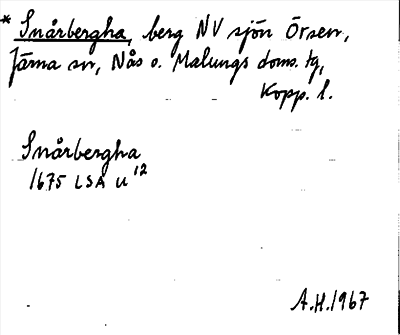 * Snårbergha, berg NV sjön Örsen,
Järna sn, Nås o. Malungs doms. tg,
Kopp. l.
Snårbergha
1675 LSA U 12
A.H. 1967